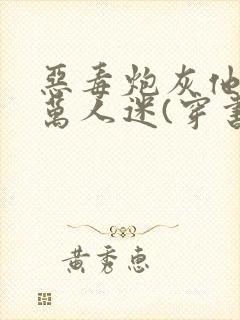 惡毒炮灰他
萬人迷(穿書
黄秀惠